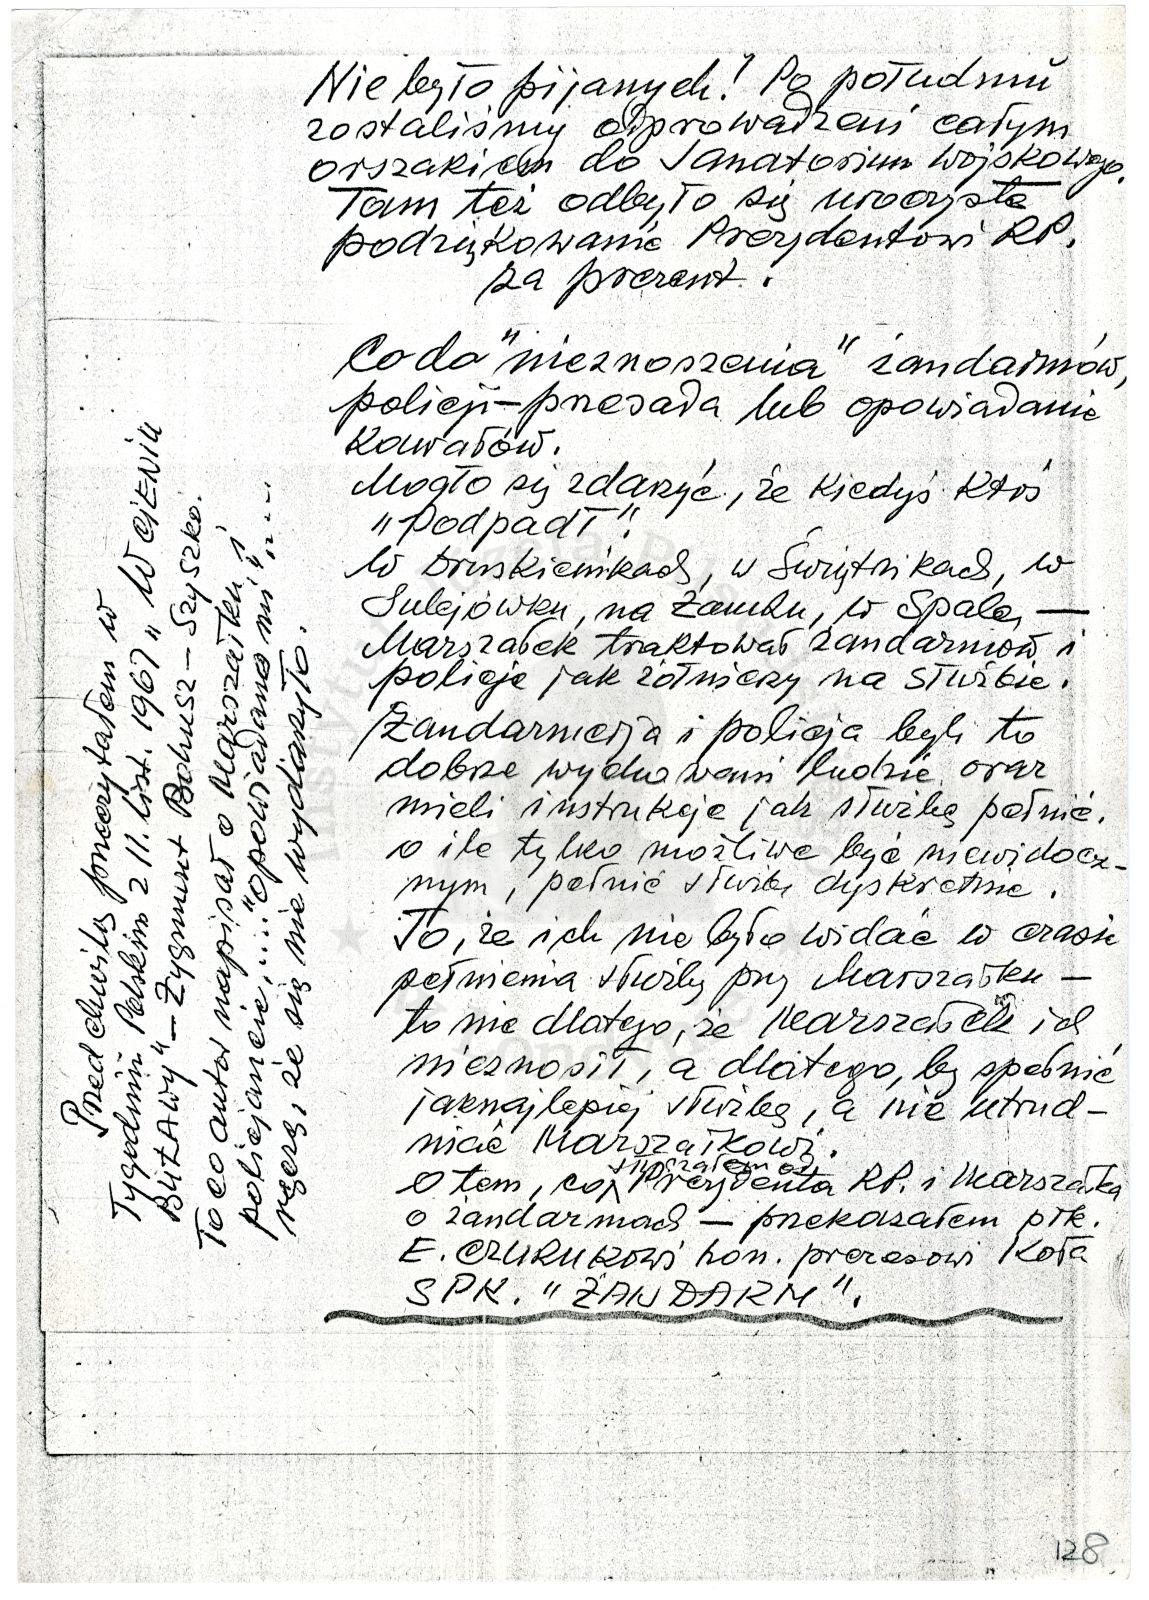 Nie było pijanych! Po południu
zostaliśmy odprowadzeni całym
orszakiem do Sanatorium Wojskowego.
Tam też odbyło się uroczyste
podziękowanie Prezydentowi RP.
za prezent.
Co do "nieznoszenia" żandarmów,
policji – przesada lub opowiadanie
kawałów.
Mogło się zdarzyć, że kiedyś ktoś
"podpadł".
W Druskienikach, w Świątnikach, w
Sulejówku, na Zamku, w Spale, —
Marszałek traktował żandarmów i
policje jak żołnierzy na służbie.
Żandarmerja i policja byli to
dobrze wychowani ludzie oraz
mieli instrukcje jak służbę pełnić.
o ile tylko możliwe być niewidocz-
nym, pełnić służbę dyskretnie.
To, że ich nie było widać w czasie
pełnienia służby przy Marszałku —
to nie dlatego, że Marszałek ich
nieznosił, a dlatego, by spełnić
jaknajlepiej służbę, a nie utrud-
niać Marszałkowi.
O tem, co słyszałem od Prezydenta RP. i Marszałka
o żandarmach — przekazałem płk.
E. CZURUKOWI hon. prezesowi Koła
SPK. "ŻANDARM".
Przed chwilą przeczytałem w
Tygodniu Polskim z 11. List. 1967 "W CIENIU
BUŁAWY" — Zygmunt Bohusz – Szyszko.
To co autor napisał o Marszałku i
policjancie,...."opowiadano mi"....
ręczę, że się nie wydarzyło.
128